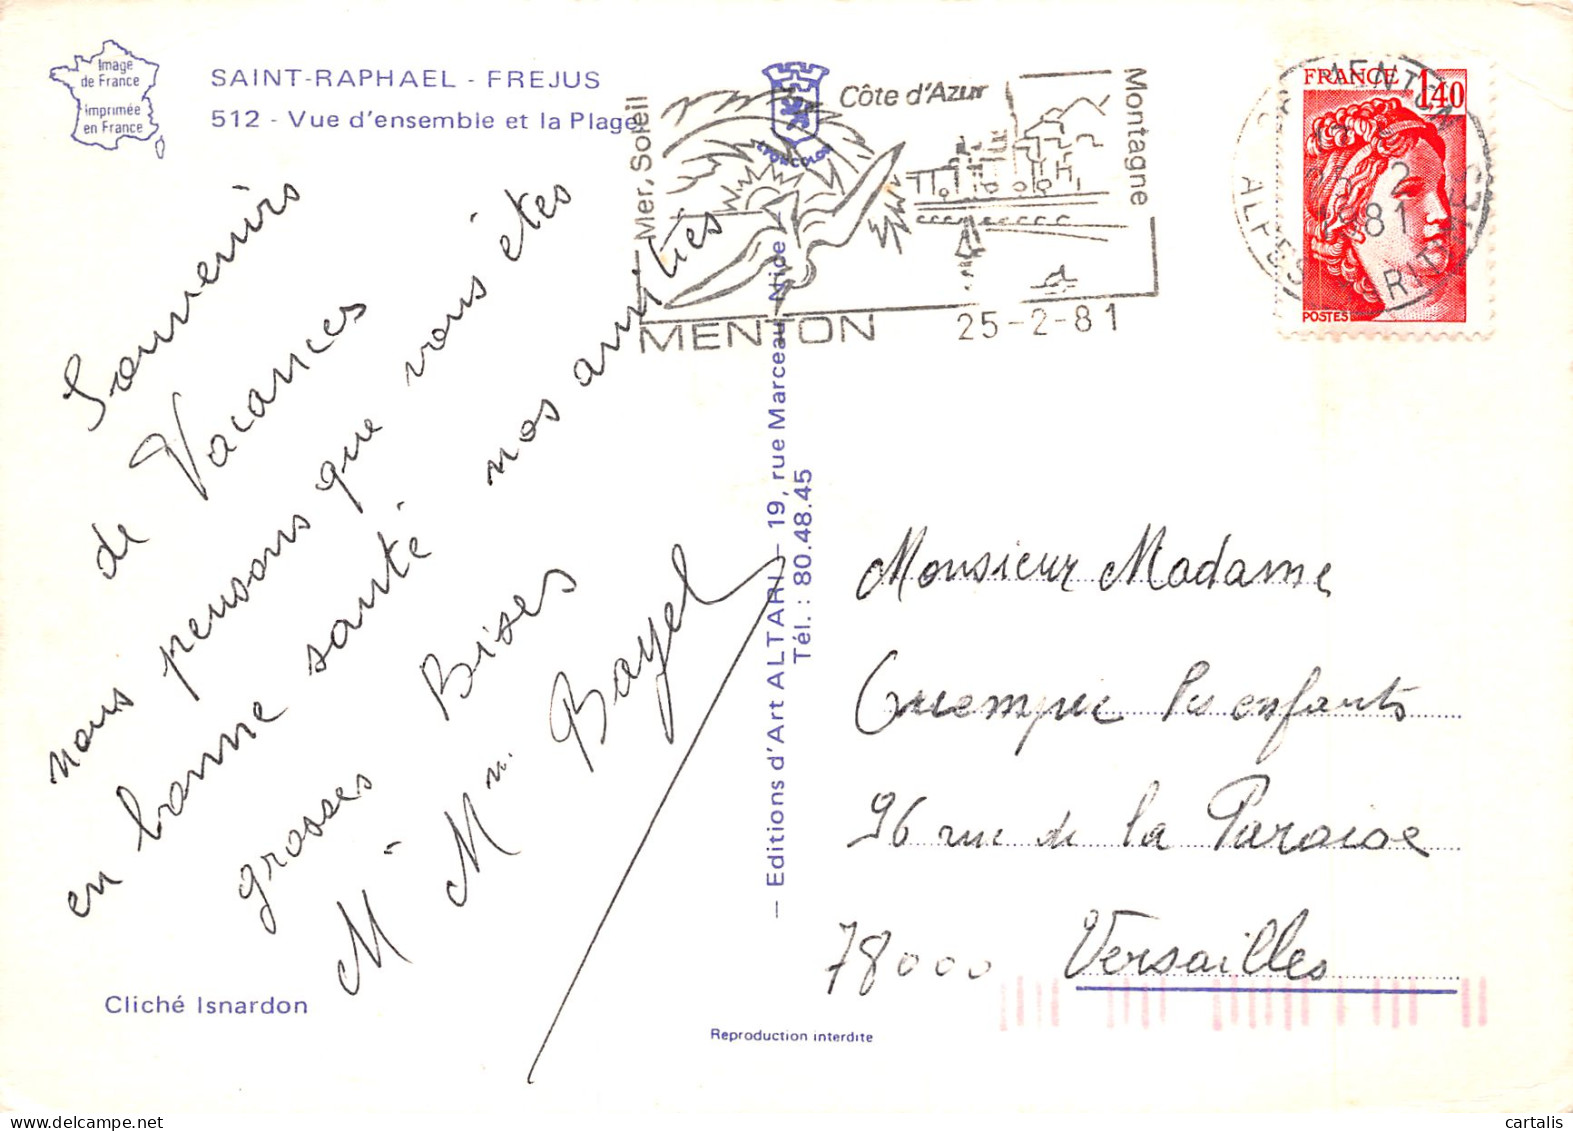 Image
de France
Imprimée
en France
SAINT-RAPHAEL - FREJUS
512 - Vue d'ensemble et la Plage
Mer, Soleil
Côte d'Azur
Montagne
MENTON
25-2-81
LYONCOLOR
FRANCE 1,40
POSTES
MENTON
2
1981
ALPES MARITIMES
Souvenirs
de Vacances
nous pensons que vous êtes
en bonne santé nos amitiés
grosses Bises
Mr Mme Bayel
Monsieur Madame
les enfants
96 rue de la Paroise
78000 Versailles
— Editions d'Art ALTARI – 19, rue Marceau, Nice
Tél. : 80.48.45
Cliché Isnardon
Reproduction interdite
www.cartalis.com